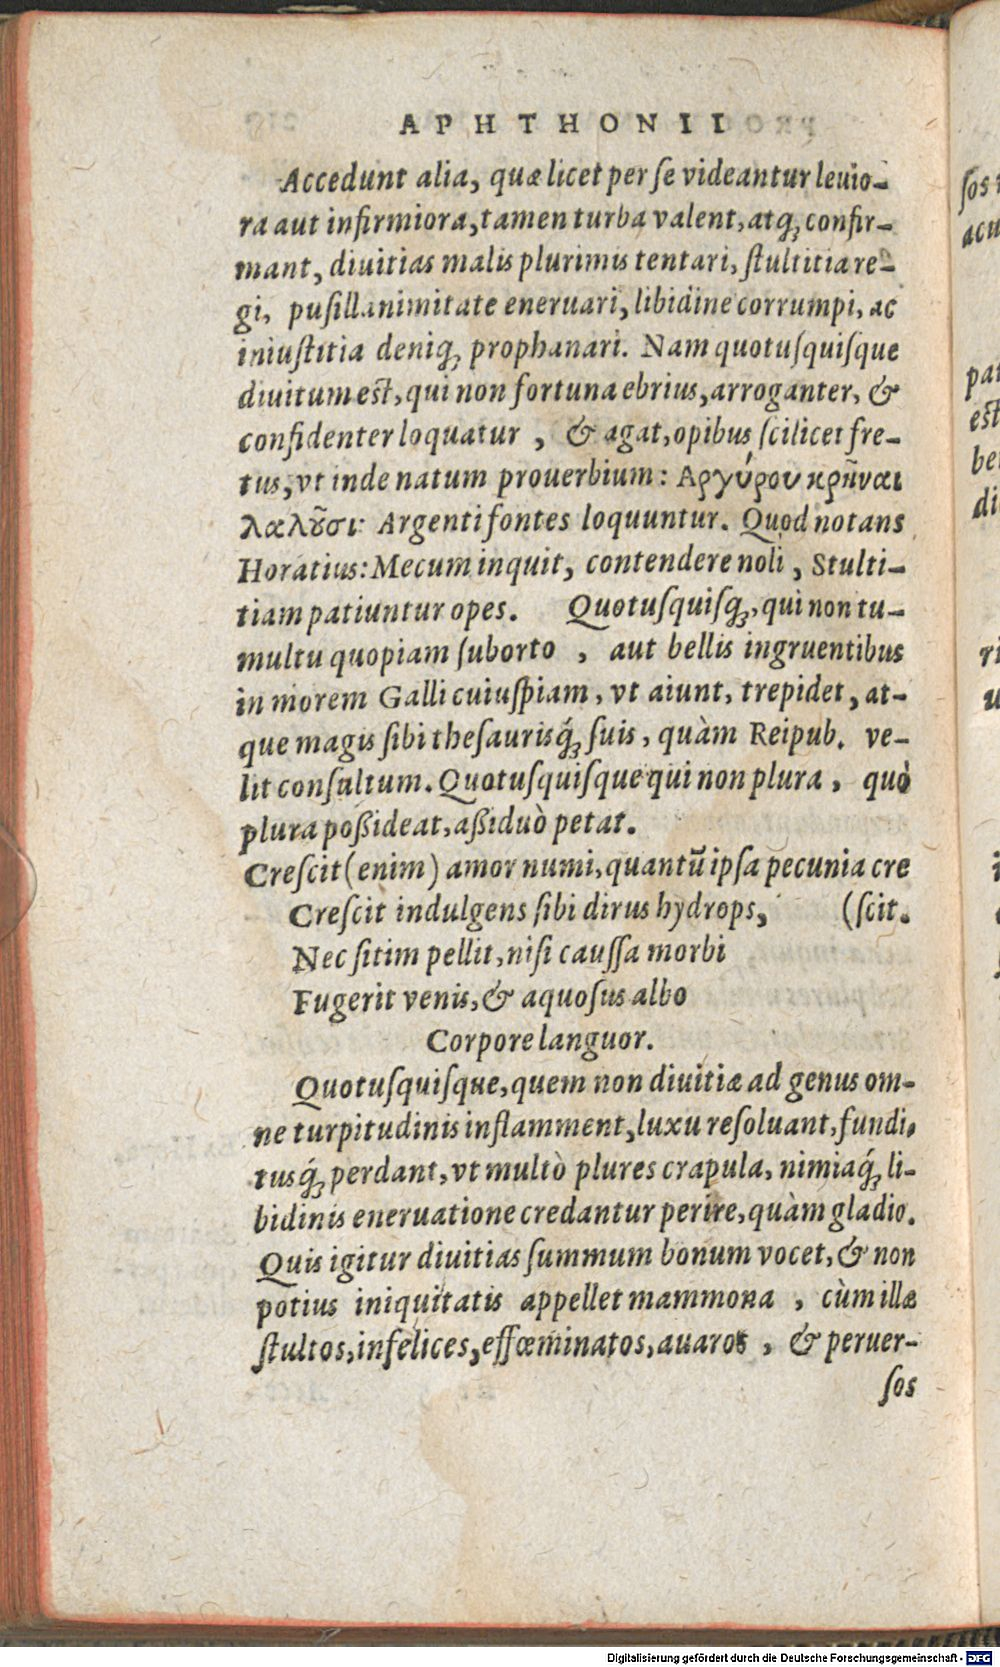 APHTHONII
Accedunt alia, quæ licet per ſe videantur leuio-
ra aut infirmiora, tamen turba valent, atq́ꝫ confir-
mant, diuitias malis plurimis tentari, ſtultitia re-
gi, puſillanimitate eneruari, libidine corrumpi, ac
iniuſtitia deniqꝫ prophanari. Nam quotuſquiſque
diuitum eſt, qui non fortuna ebrius, arroganter, &
confidenter loquatur, & agat, opibus ſcilicet fre-
tus, vt inde natum prouerbium: Αργύρου κρῆναι
λαλοῦσι: Argenti fontes loquuntur. Quod notans
Horatius: Mecum inquit, contendere noli, Stulti-
tiam patiuntur opes. Quotuſquiſqꝫ, qui non tu-
multu quopiam ſuborto, aut bellis ingruentibus
in morem Galli cuiuſpiam, vt aiunt, trepidet, at-
que magis ſibi theſaurisq́ꝫ ſuis, quàm Reipub. ve-
lit conſultum. Quotuſquiſque qui non plura, quò
plura poßideat, aßiduò petat.
Creſcit (enim) amor numi, quantũ ipſa pecunia cre
Creſcit indulgens ſibi dirus hydrops, (ſcit.
Nec ſitim pellit, niſi cauſſa morbi
Fugerit venis, & aquoſus albo
Corpore languor.
Quotuſquiſque, quem non diuitiæ ad genus om-
ne turpitudinis inflamment, luxu reſoluant, fundi-
tusq́ꝫ perdant, vt multò plures crapula, nimiaq́ꝫ li-
bidinis eneruatione credantur perire, quàm gladio.
Quis igitur diuitias ſummum bonum vocet, & non
potius iniquitatis appellet mammona, cùm illæ
ſtultos, infelices, effœminatos, auaros, & peruer-
ſos
Digitalisierung gefördert durch die Deutsche Forschungsgemeinschaft - DFG